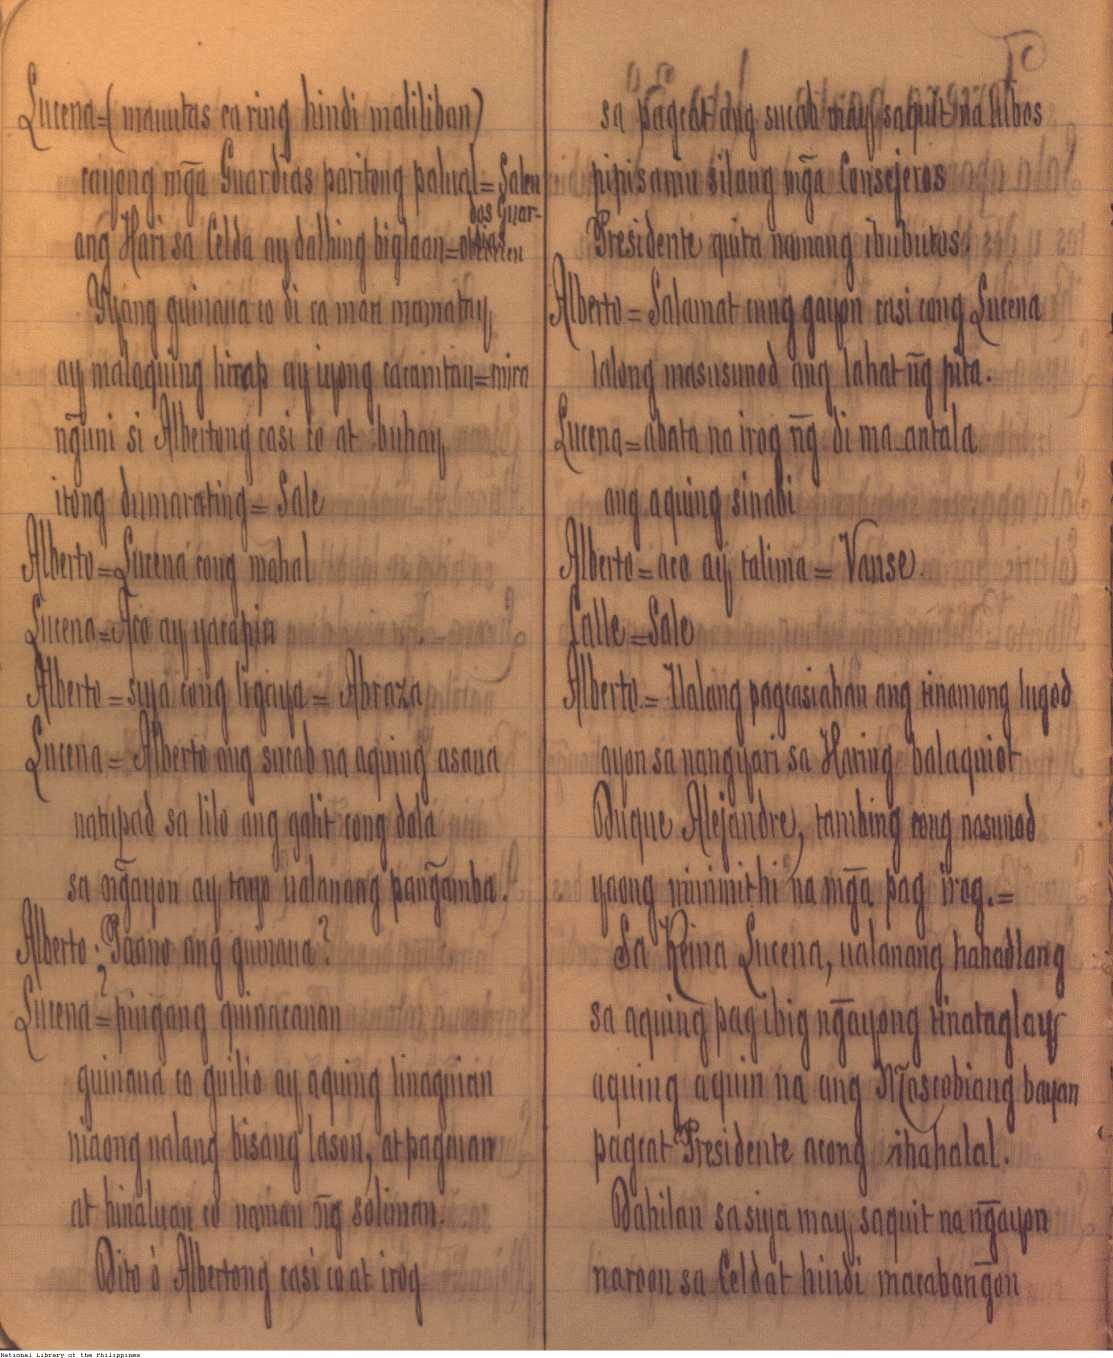 Lucena=( mauutas ca ring hindi maliliban)
cayong mg̃a Guardias paritong palual= Salen
dos Guar-
dias
ang Hari sa Celda ay dalhing biglaan=obedecen
Yyang guinaua co di ca man mamatay
ay malaquing hirap ay iyong cacamtan=mira
ng̃uni si Albertong casi co at buhay,
itong dumarating= Sale
Alberto=Lucena cong mahal
Lucena=Aco ay yacapin
Alberto = siya cong ligaya = Abraza
Lucena= Alberto ang sucab na aquing asaua
natupad sa lilo ang galit cong dala
sa ng̃ayon ay tayo ualanang pang̃amba.
Alberto. Paano ang guinaua?
Lucena= quinacanan
guinaua co guilio ay aquing linaguian
niaong ualang bisang lason, at pagcuan
at hinaluan co naman ng̃ soliman.
Dito ó Albertong casi co at irog
sa pagcat ang sucab may saquit na Albos
pipisamin silang mg̃a Consejeros
Presidente quita namang ibubutos.
Alberto= Salamat cung gayon casi cong Lucena
lalong masusunod ang lahat ng̃ pita.
Lucena=abata na irog ng̃ di ma antala
ang aquing sinabi
Alberto=aco ay talima= Vanse.
Calle=Sale
Alberto.= Ualang pagcasiahan ang tinamong lugod
ayon sa nangyari sa Haring balaquiot
Duque Alejandre, tambing cong nasunod
yaong ninimithi na mg̃a pag irog.=
Sa Reina Lucena, ualanang hahadlang
sa aquing pag ibig ng̃ayong tinataglay
aquing aquin na ang Moscobiang bayan
pagcat Presidente acong ihahalal.
Dahilan sa siya may saquit na ng̃ayon
naroon sa Celdat hindi macabang̃on
National Library of the Philippines